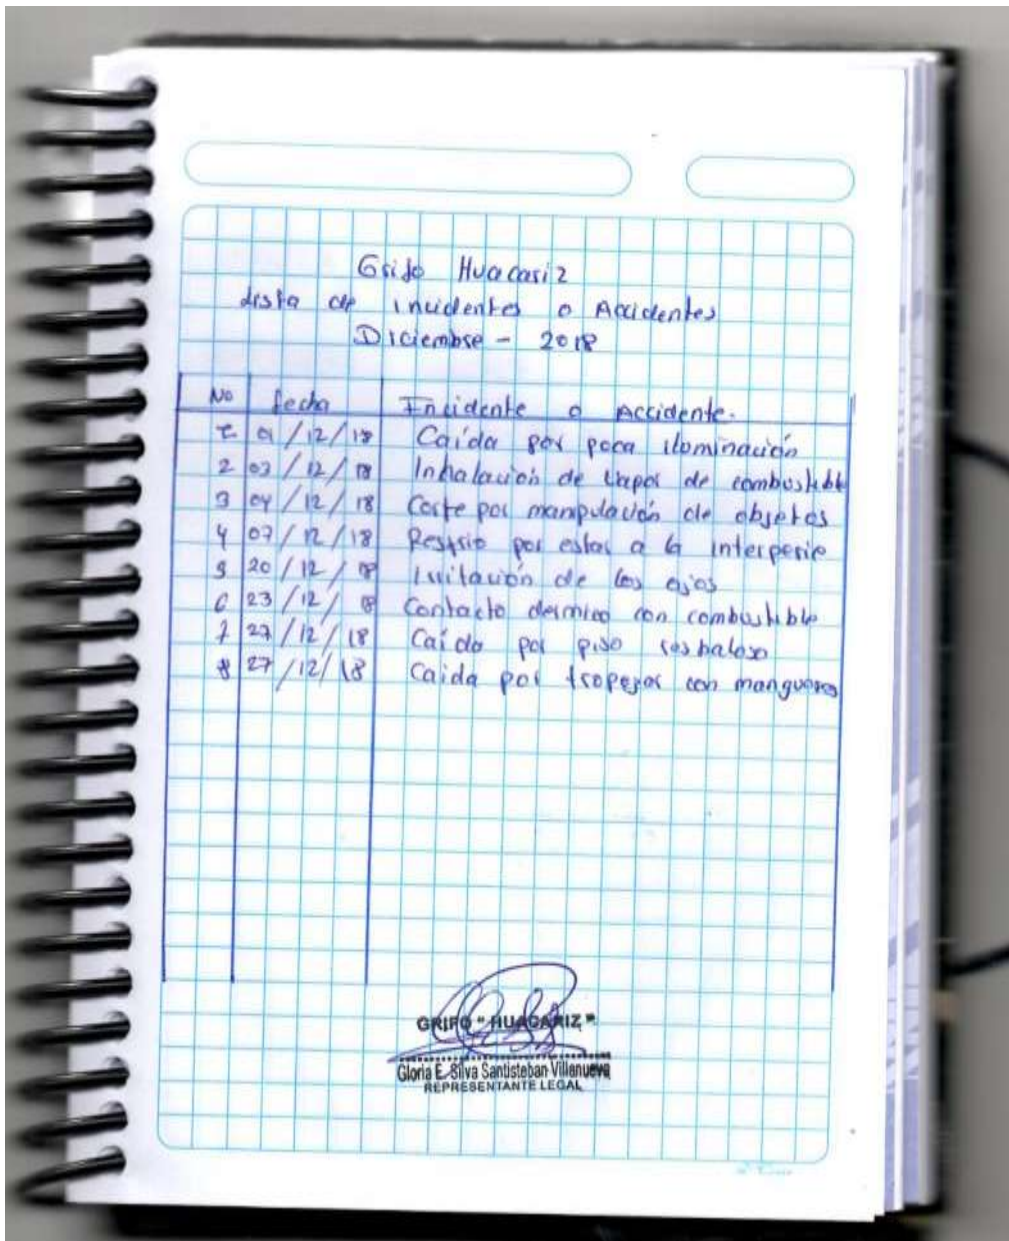 Grifo Huacariz
Lista de incidentes o Accidentes
Diciembre - 2018
No fecha Incidente o Accidente.
1 01/12/18 Caída por poca iluminación
2 03/12/18 Inhalación de vapor de combustible
3 04/12/18 Corte por manipulación de objetos
4 07/12/18 Resfrio por estar a la interperie
5 20/12/18 Irritación de los ojos
6 23/12/18 Contacto dermico con combustible
7 27/12/18 Caída por piso resbaloso
8 27/12/18 Caida por tropezar con mangueras
GRIFO "HUACARIZ"
Gloria E. Silva Santisteban Villanueva
REPRESENTANTE LEGAL